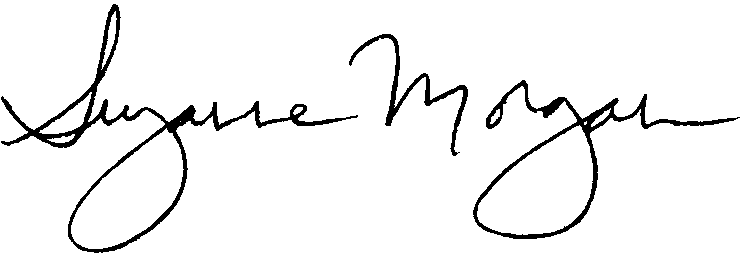 Suzanne Morgan